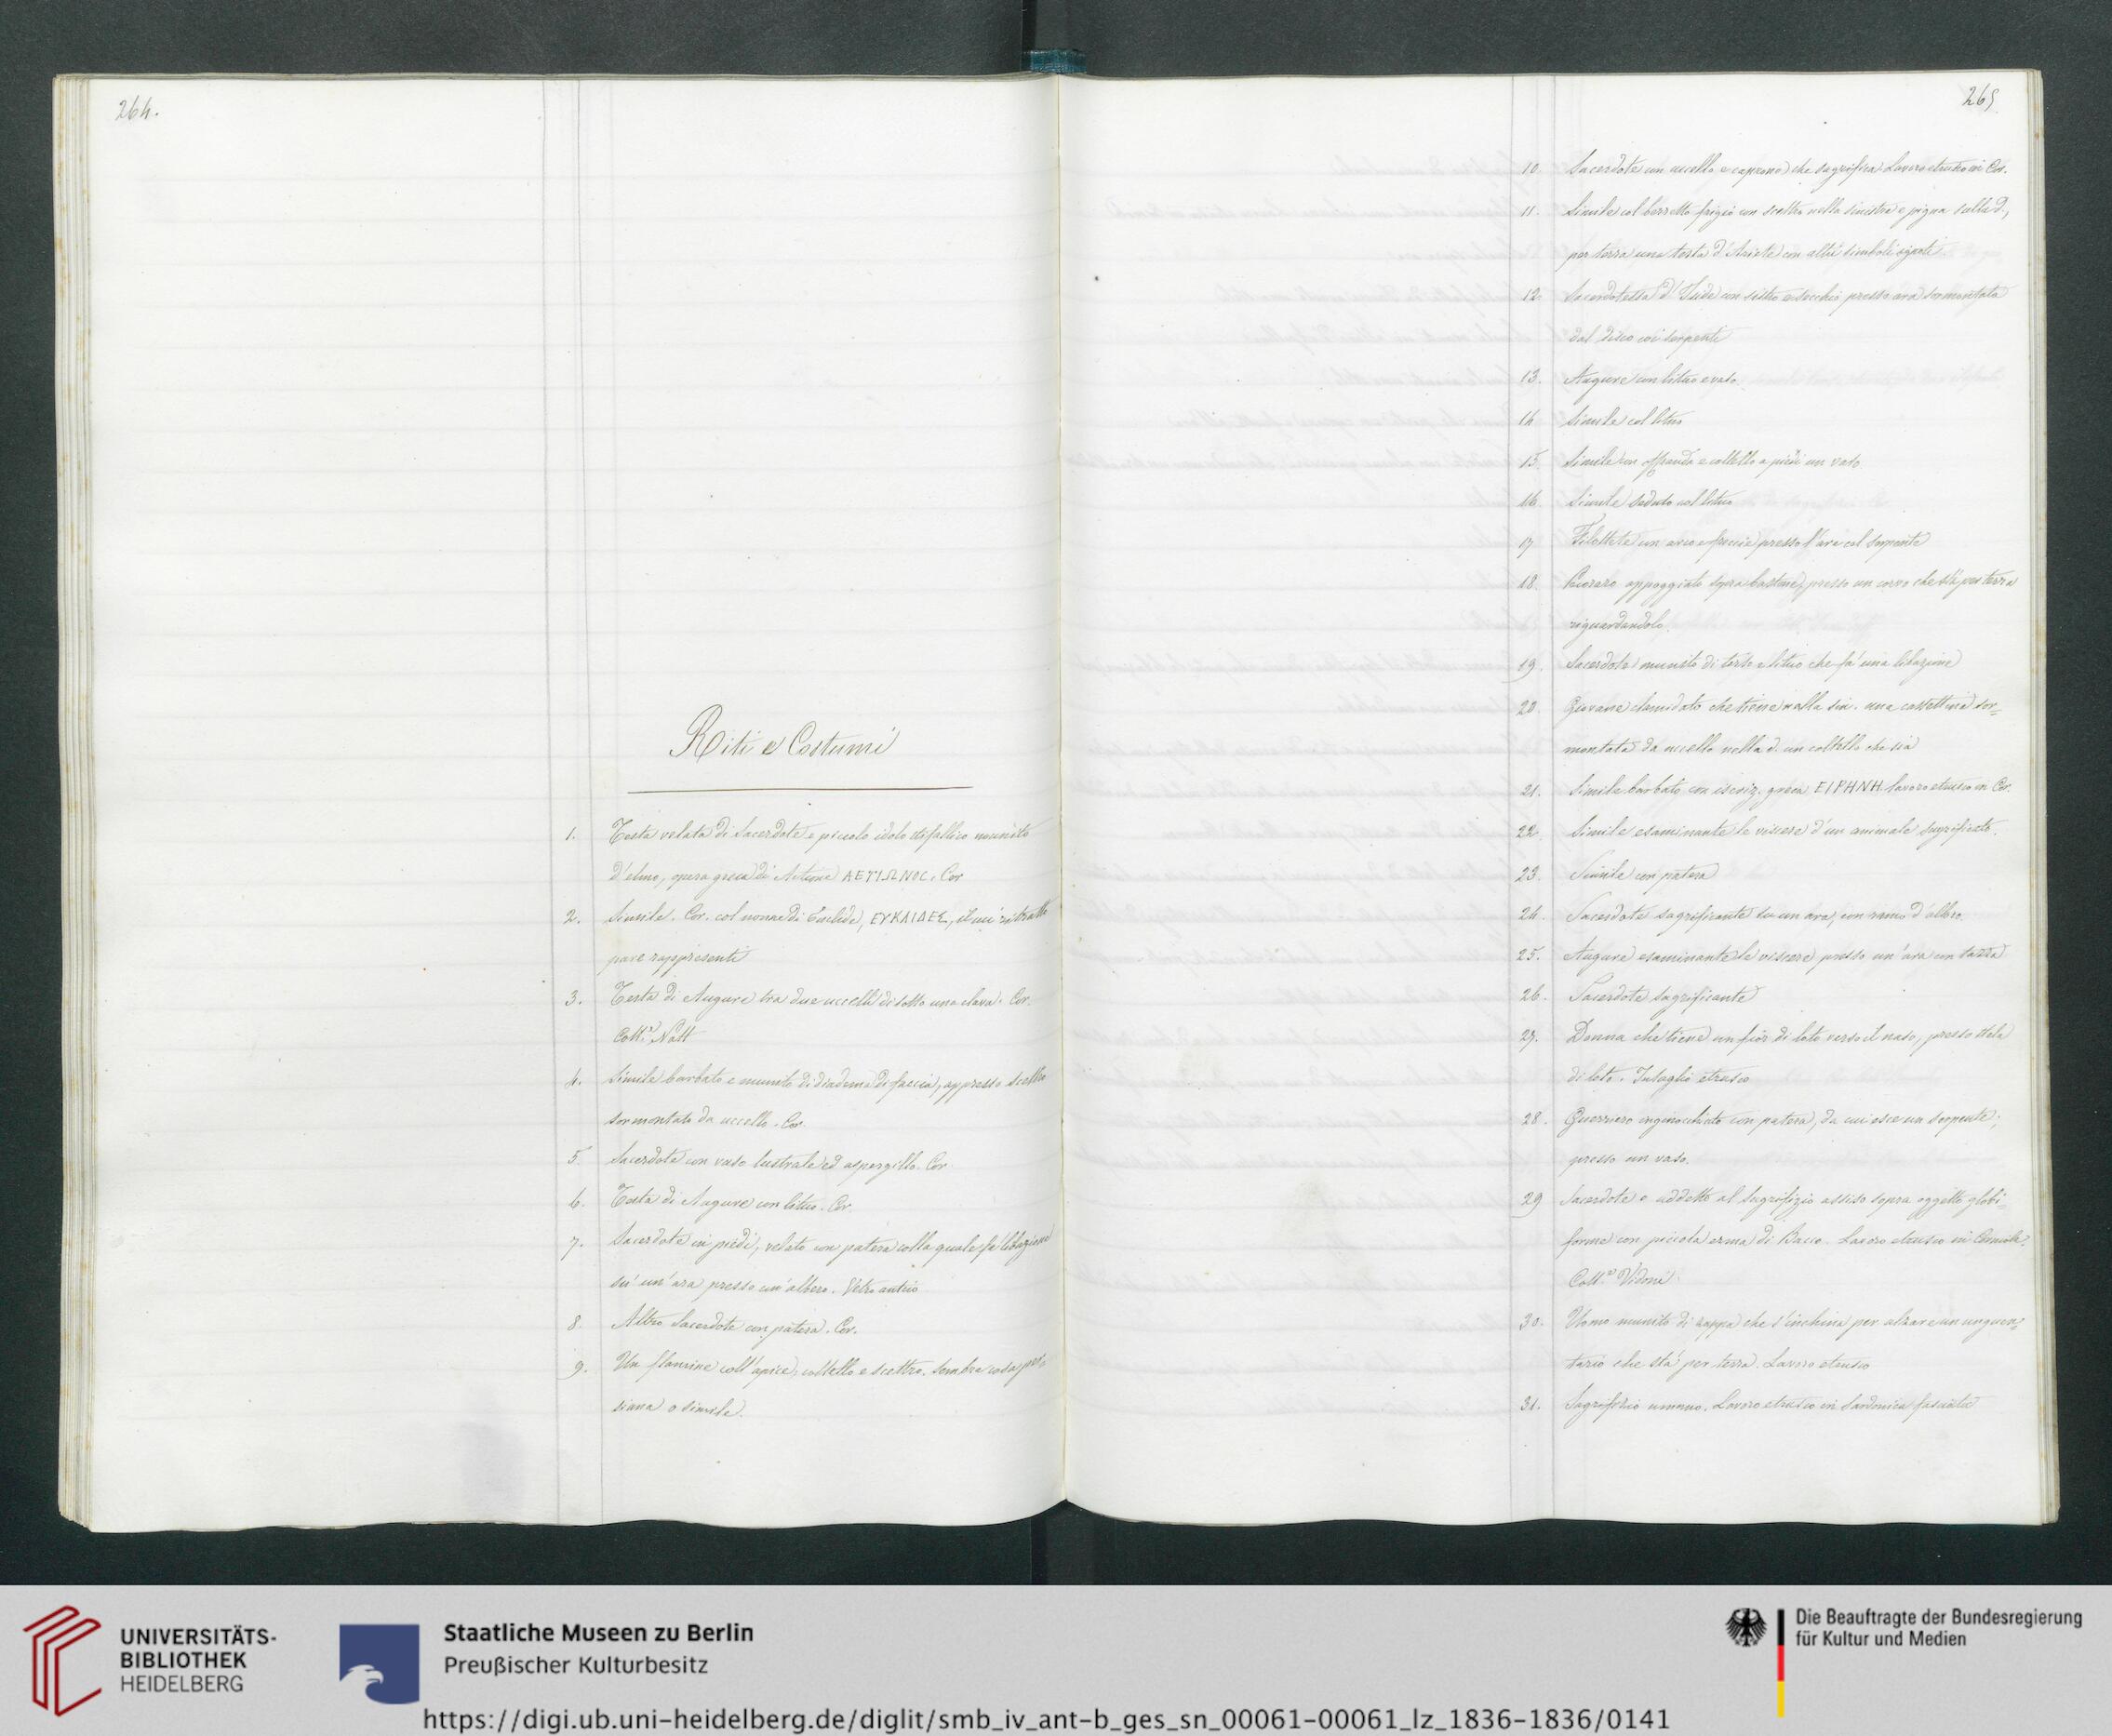 264.
Riti e Costumi
1. Testa velata di Sacerdote e piccolo idolo itifallico munito
d'elmo, opera greca di Aetione ΑΕΤΙΩΝΟC. Cor
2. Simile. Cor. col nome di Euclide, ΕΥΚΛΙΔΕΣ, il cui ritratto
pare rappresenti
3. Testa di Augure tra due uccelli di sotto una clava. Cor.
Coll.e Nott
4. Simile barbato e munito di diadema di faccia, appresso
sormontato da uccello. Cor
5. Sacerdote con vaso lustrale ed aspergillo. Cor
6. Testa di Augure con lituo. Cor.
7. Sacerdote in piedi, velato con patera colla quale fa libazione
su' un'ara presso un'albero. Vetro antico
8. Altro Sacerdote con patera. Cor.
9. Un flamine coll'apice, coltello e scettro. Sembra cosa per=
siana o simile.
265
10. Sacerdote con uccello e caprone che sagrifica. Lavoro etrusco in Cor.
11. Simile col berretto frigio con scettro nella sinistra e pigna sulla d.,
per terra una testa d'Ariete con altri simboli ignoti
12. Sacerdotessa d'Iside con sistro e secchio presso ara sormontata
dal disco coi serpenti
13. Augure con lituo e vaso.
14 Simile col lituo
15. Simile con offranda e coltello a piedi un vaso
16. Simile seduto col lituo
17 Filottete con arco e freccie presso l'ara col serpente
18. appoggiato sopra bastone, presso un corvo che stà per terra
riguardandolo.
19. Sacerdote munito di e lituo che fa una libazione
20. Giovane clamidato che tiene nella sin. una cassettina sor=
montata da uccello nella d. un coltello che sia
21. Simile barbato con iscriz. greca ΕΙΡΗΝΗ. lavoro etrusco in Cor.
22. Simile esaminante le viscere d'un animale sagrificato.
23. Simile con patera
24. Sacerdote sagrificante su un ara, con ramo d'albero.
25. Augure esaminante le viscere presso un'ara con tazza
26. Sacerdote sagrificante
27. Donna che tiene un fiör di loto verso il naso, presso stelo
di loto. Intaglio etrusco
28. Guerriero inginocchiato con patera, da cui esce un serpente;
presso un vaso.
29 Sacerdote o addetto al sagrifizio assiso sopra oggetto globi=
forme con piccola erma di Bacco. Lavoro etrusco in Corniola.
Coll.e Vidoni
30. Uomo munito di zappa che s'inchina per alzare un unguen=
tario che stà per terra. Lavoro etrusco
31. Sagrifizio umano. Lavoro etrusco in Sardonica fasciata
UNIVERSITÄTS-
BIBLIOTHEK
HEIDELBERG
Staatliche Museen zu Berlin
Preußischer Kulturbesitz
Die Beauftragte der Bundesregierung
für Kultur und Medien
https://digi.ub.uni-heidelberg.de/diglit/smb_iv_ant-b_ges_sn_00061-00061_lz_1836-1836/0141